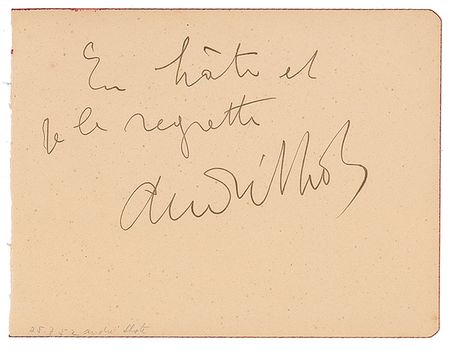 En hâte et
je le regrette
André Lhote
25.7.52 andré lhote